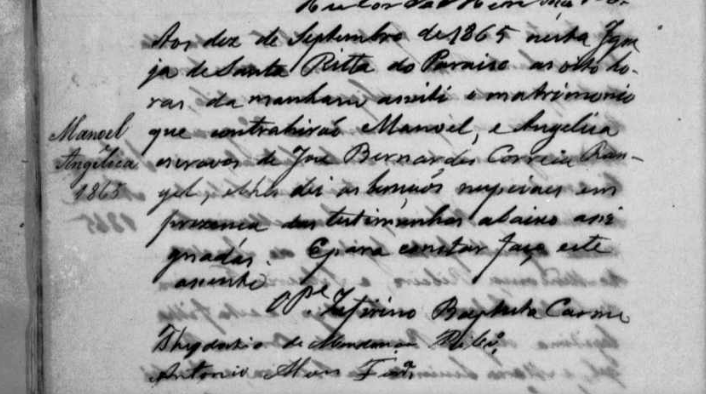 Aos dez de Septembro de 1865 nesta Igre
ja de Santa Ritta do Paraiso as oito ho-
ras da manhaã assisti o matrimonio
Manoel
Angélica
1865
que contrahirão Manoel, e Angelica
escravos de José Bernardes Correia Ran-
gel, e lhes dei as bençãos nupciaes em
presença das testimunhas abaixo assi
gnadas. E para constar faço este
assento.
O Pe. Zeferino Baptista Carmo
de Mendonça Ribº.
Antonio